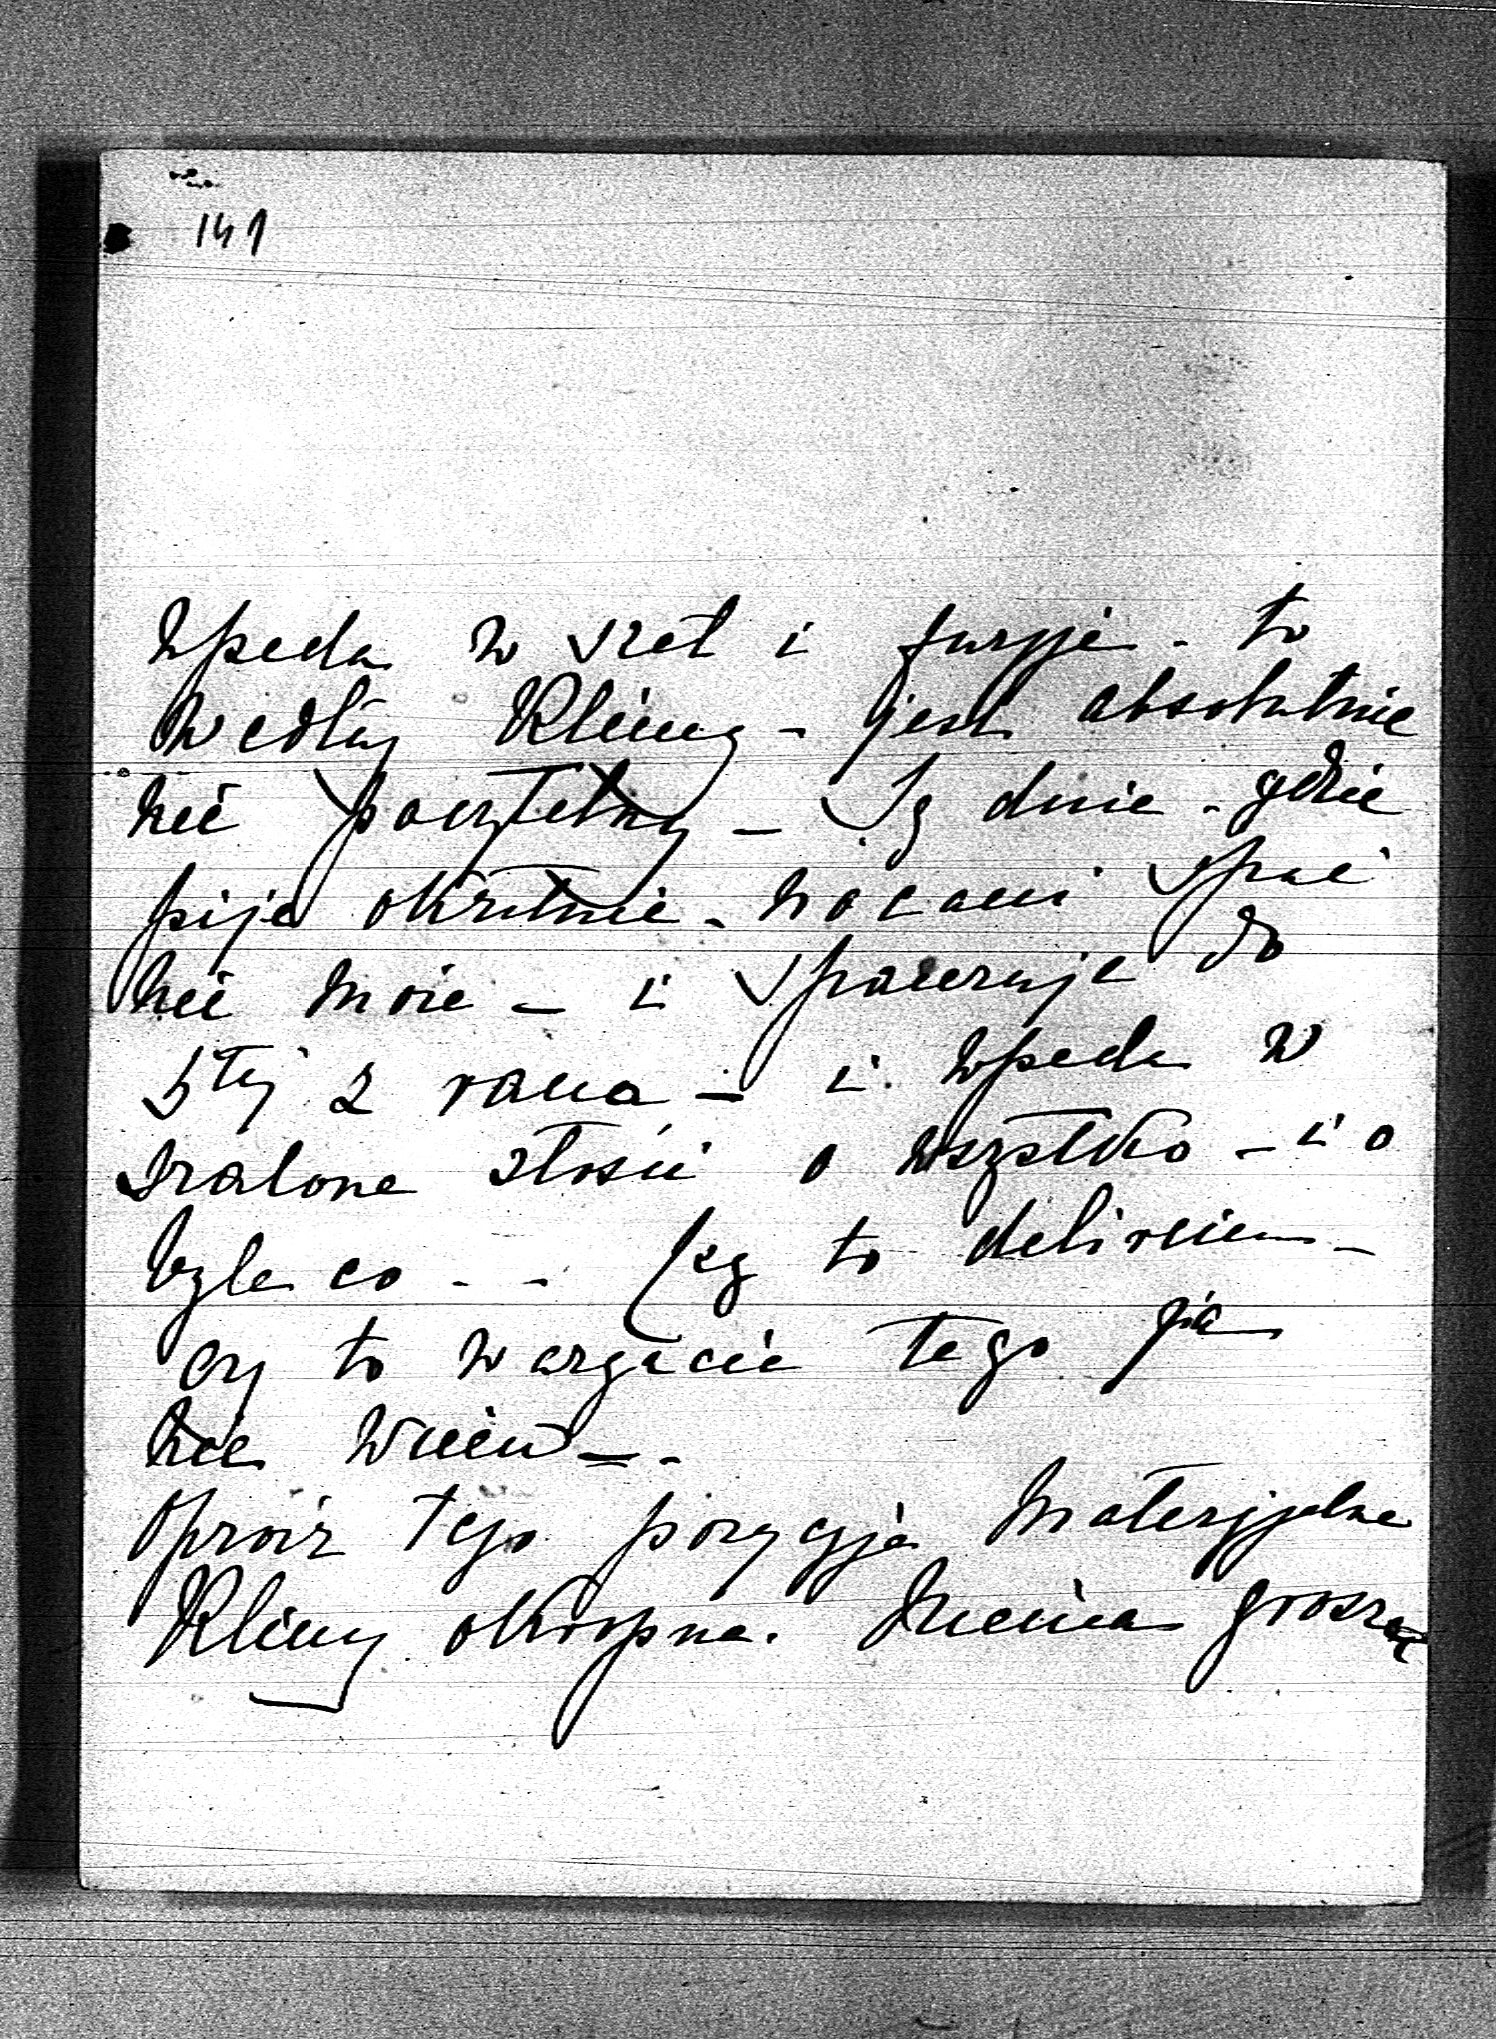 141
wpada w szał i furyje - to
według Klimy - jest absolutnie
nie poczytalny - Są dnie - gdzie
pije okrutnie - nocami spać
nie może - i spaceruje do
5tej z rana - i wpada w
szalone złości o wszystko - i o
byle co - - Czy to delirium -
czy to warjacie tego ja
nie wiem - -
Oprócz tego pozycyja materyjalna
Klimy okropna. Niema grosza